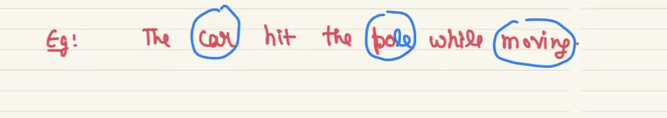 Eg: The car hit the pole while moving.